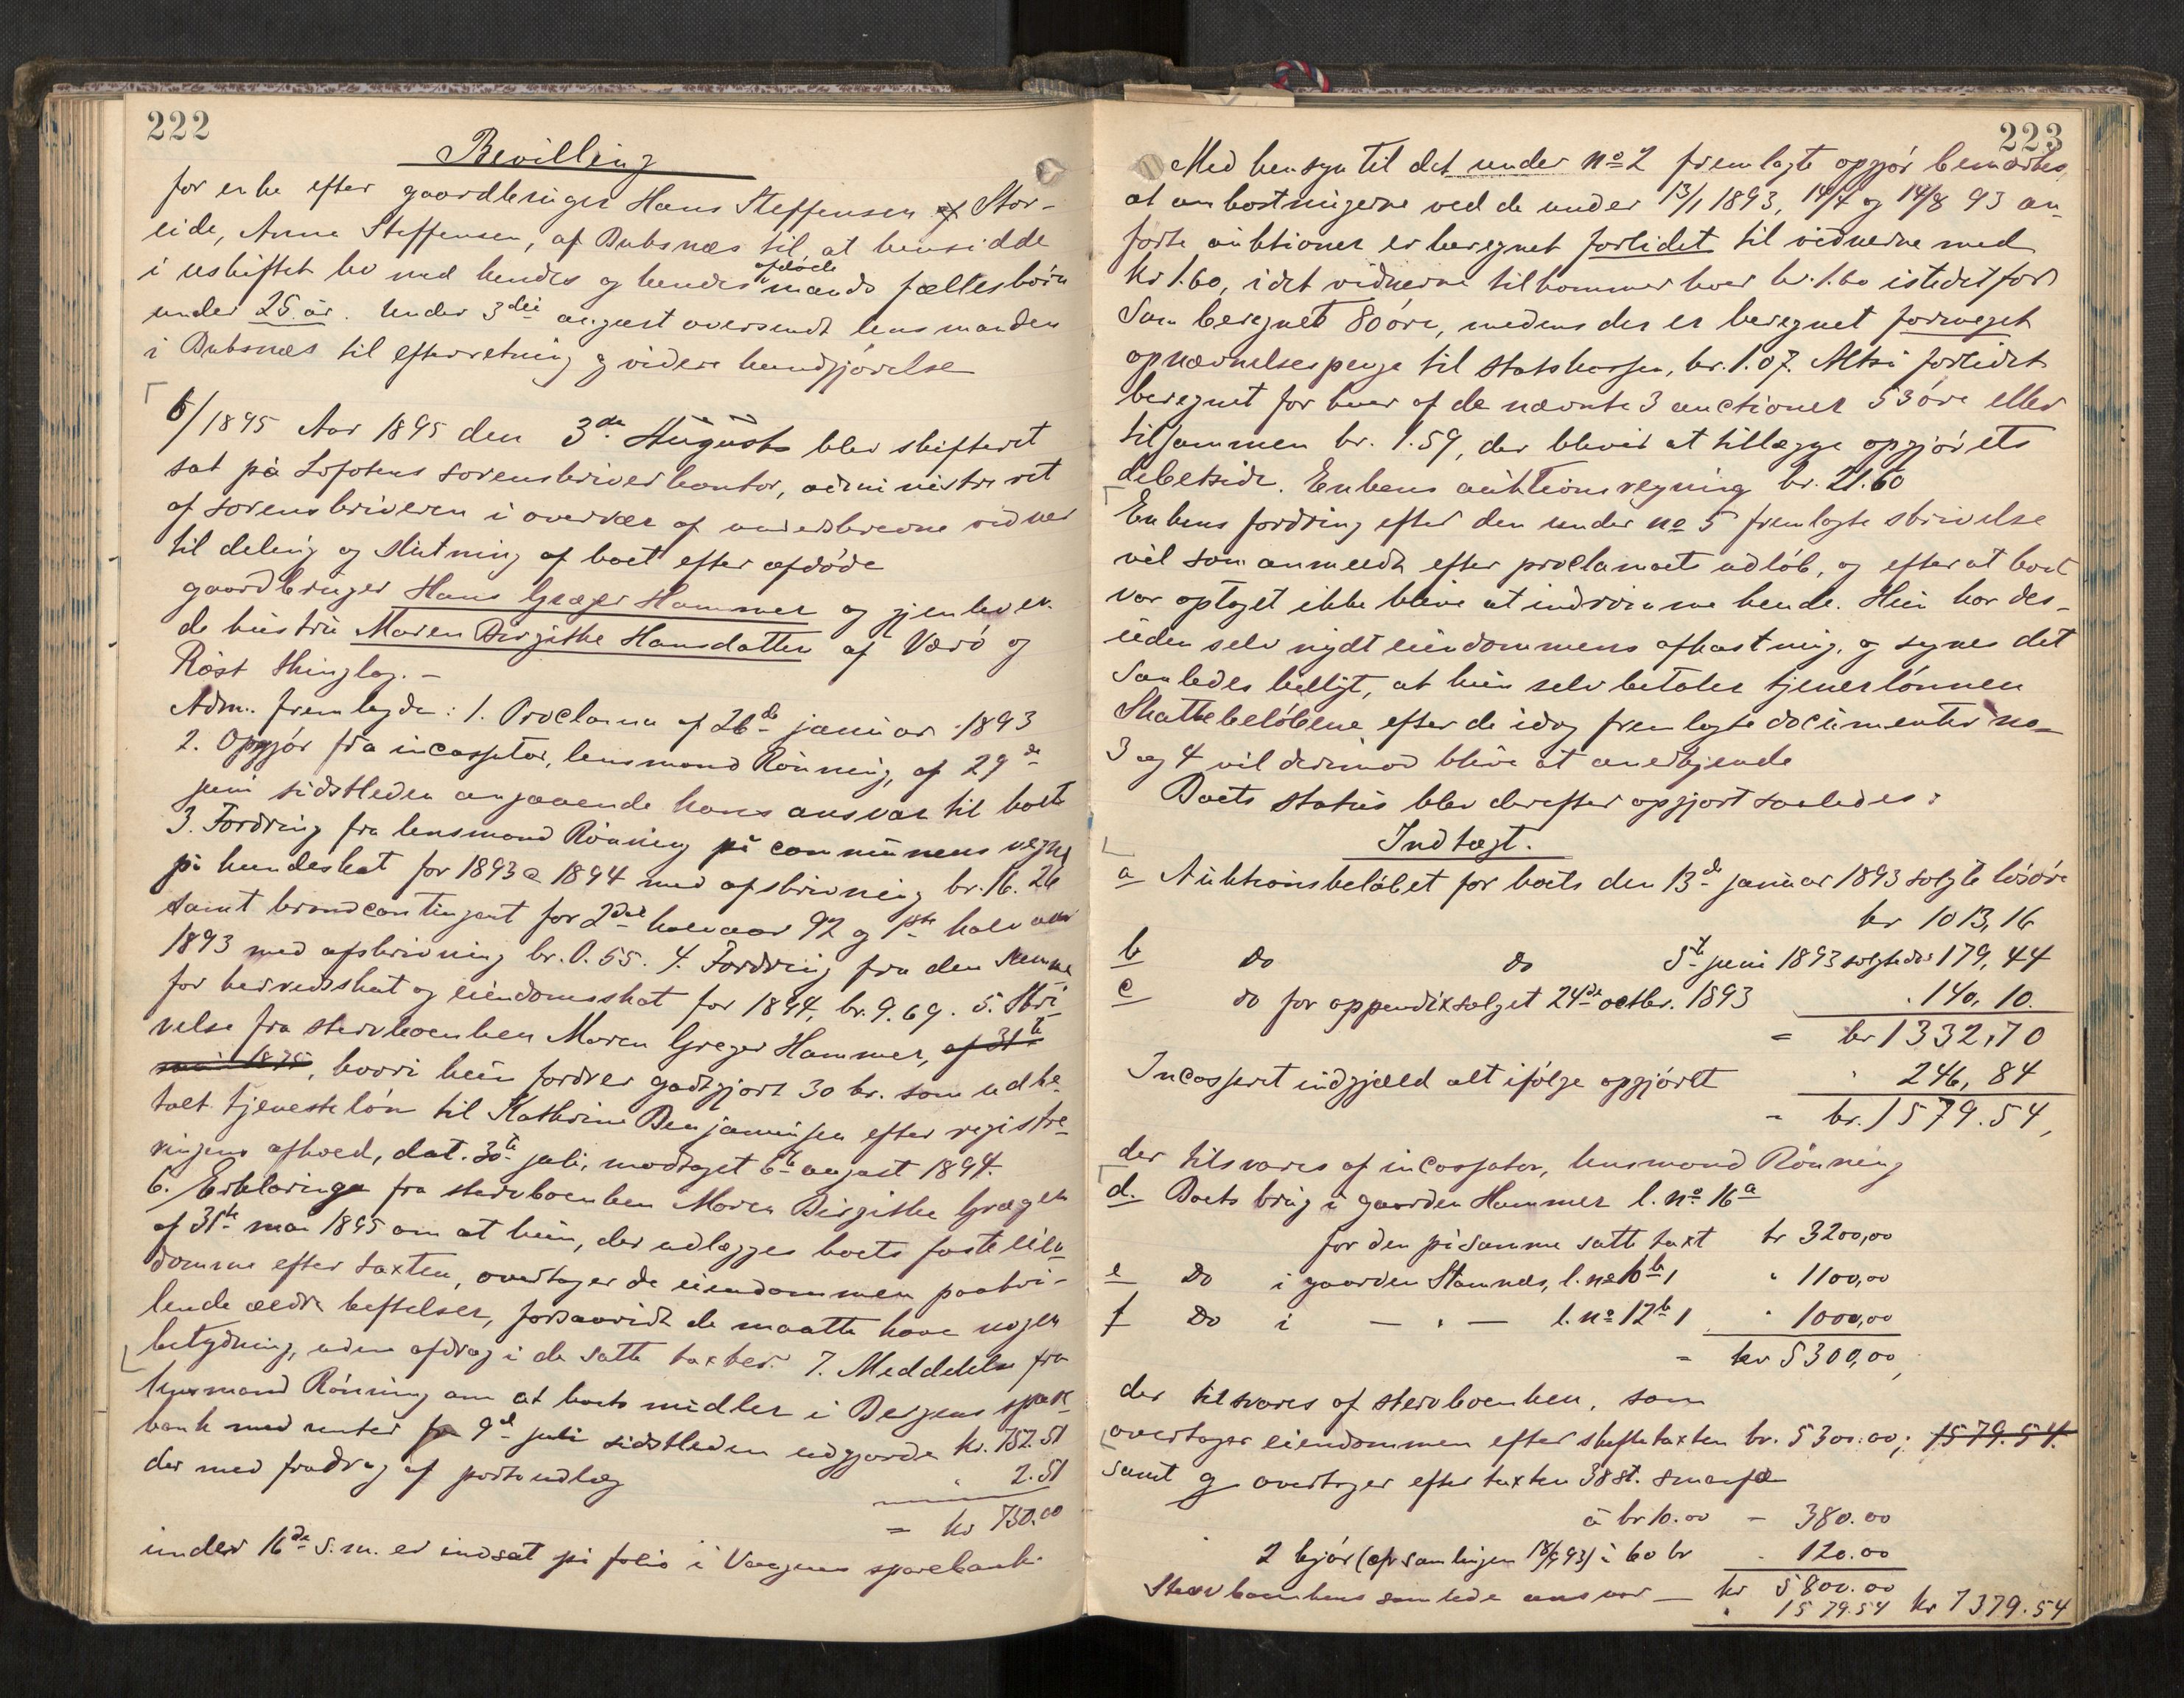 222
Bevilling
for enke efter gaardbruger Hans Steffensen af Stor-
eide, Anne Steffensen, af Buksnæs til at hensidde
i uskiftet bo med hendes og hendes afdöde mands fællesbörn
under 25 år. Under 3die august oversendt lensmanden
i Buksnæs til efterretning og videre kundgjörelse
6/1895 Aar 1895 den 3de August blev skifteret
sat på Lofotens sorenskriverkontor, administreret
af sorenskriveren i overvær af underskrevne vidner
til deling og slutning af boet efter afdöde
gaardbruger Hans Greger Hammer og gjenleven-
de hustru Maren Birgithe Hansdatter af Værö og
Röst thinglag. -
Adm. fremlagde: 1. Proclama af 26de januar 1893
2. Opgjör fra incassator, lensmand Rönning, af 29de
juni sidstleden angaaende hans ansvar til boet
3. Fordring fra lensmand Rönning på communens vegne
på hundeskat for 1893 & 1894 med afskrivning kr. 16.26
samt brandcontingent for 2det halvaar 92 og 1ste halvaar
1893 med afskrivning kr. 0.55. 4. Fordring fra den samme
for herredsskat og eiendomsskat for 1894, kr. 9.69. 5. Skri-
velse fra stervboenken Maren Greger Hammer, af 31te
mai 1895, hvori hun fordrer godtgjort 30 kr. som udbe-
talt tjenestelön til Kathrine Benjaminsen efter registre-
ringens afhold, dat. 30te juli, modtaget 6te august 1894.
6. Erklæringe fra stervboenken Maren Birgithe Greger
af 31te mai 1895 om at hun, der udlægges boets faste eien-
domme efter taxten, overtager de eiendommen paahvi-
lende ældre heftelser, forsaavidt de maatte have nogen
betydning, uden afdrag i de satte taxter. 7. Meddelelse fra
lensmand Rönning om at boets midler i Bergens spare-
bank med renter fra 9de juli sidstleden udgjorde kr. 752.51
der med fradrag af portoudlæg " 2.51
= kr 750.00
under 16de s.m. er indsat på folio i Vaagens sparebank.
223
Med hensyn til det under No 2 fremlagte opgjör bemærkes
at omkostningerne ved de under 13/1 1893, 14/4 og 14/8 93 an-
förte auktioner er beregnet forlidet til vidnerne med
kr 1.60, idet vidnerne tilkommer hver kr. 1.60 istedetfor
som beregnet 80 öre, medens der er beregnet formeget
opnævnelsespenge til statskassen, kr. 1.07. Altså forlidet
beregnet for hver af de nævnte 3 auctioner 53 öre eller
tilsammen kr. 1.59, der bliver at tillægge opgjörets
debetside. Enkens auktionsregning kr. 21.60
Enkens fordring efter den under no 5 fremlagte skrivelse
vil som anmeldt efter proclamaets udlöb, og efterat boet
var optaget ikke blive at indrömme hende. Hun har des-
uden selv nydt eiendommens afkastning, og synes det
saaledes billigt, at hun selv betaler tjenerlönnen
Skattebelöbene efter de idag fremlagte documenter no
3 og 4 vil derimod blive at anerkjende
Boets status blev derefter opgjort saaledes:
Indtægt.
a Auktionsbelöbet for boets den 13de januar 1893 solgte lösöre
kr 1013,16
b do do 5te juni 1893 solgte do " 179,44
c do for appendixsalget 24de octbr. 1893 " 140,10.
= kr 1332,70
Incasseret indgjæld alt ifölge opgjöret " 246,84
= kr. 1579.54,
der tilsvares af incassator, lensmand Rönning
d. Boets brug i gaarden Hammer l. no 16a
for den på samme satte taxt kr 3200,00
e Do i gaarden Stamnes, l. no 10b1 " 1100,00
f Do i — " — l. no 12b1 " 1000,00
= kr 5300,00,
der tilsvares af stervboenken, som
overtager eiendommen efter skiftetaxten kr. 5300.00; 1579.54.
samt g overtager efter taxten 38 st. smaafæ
à kr 10.00 - 380.00
2 kjör (cfr samlingen 18/9 93) à 60 kr " 120.00
Stervboenkens samlede ansvar — kr 5800.00
" 1579.54 kr 7379.54